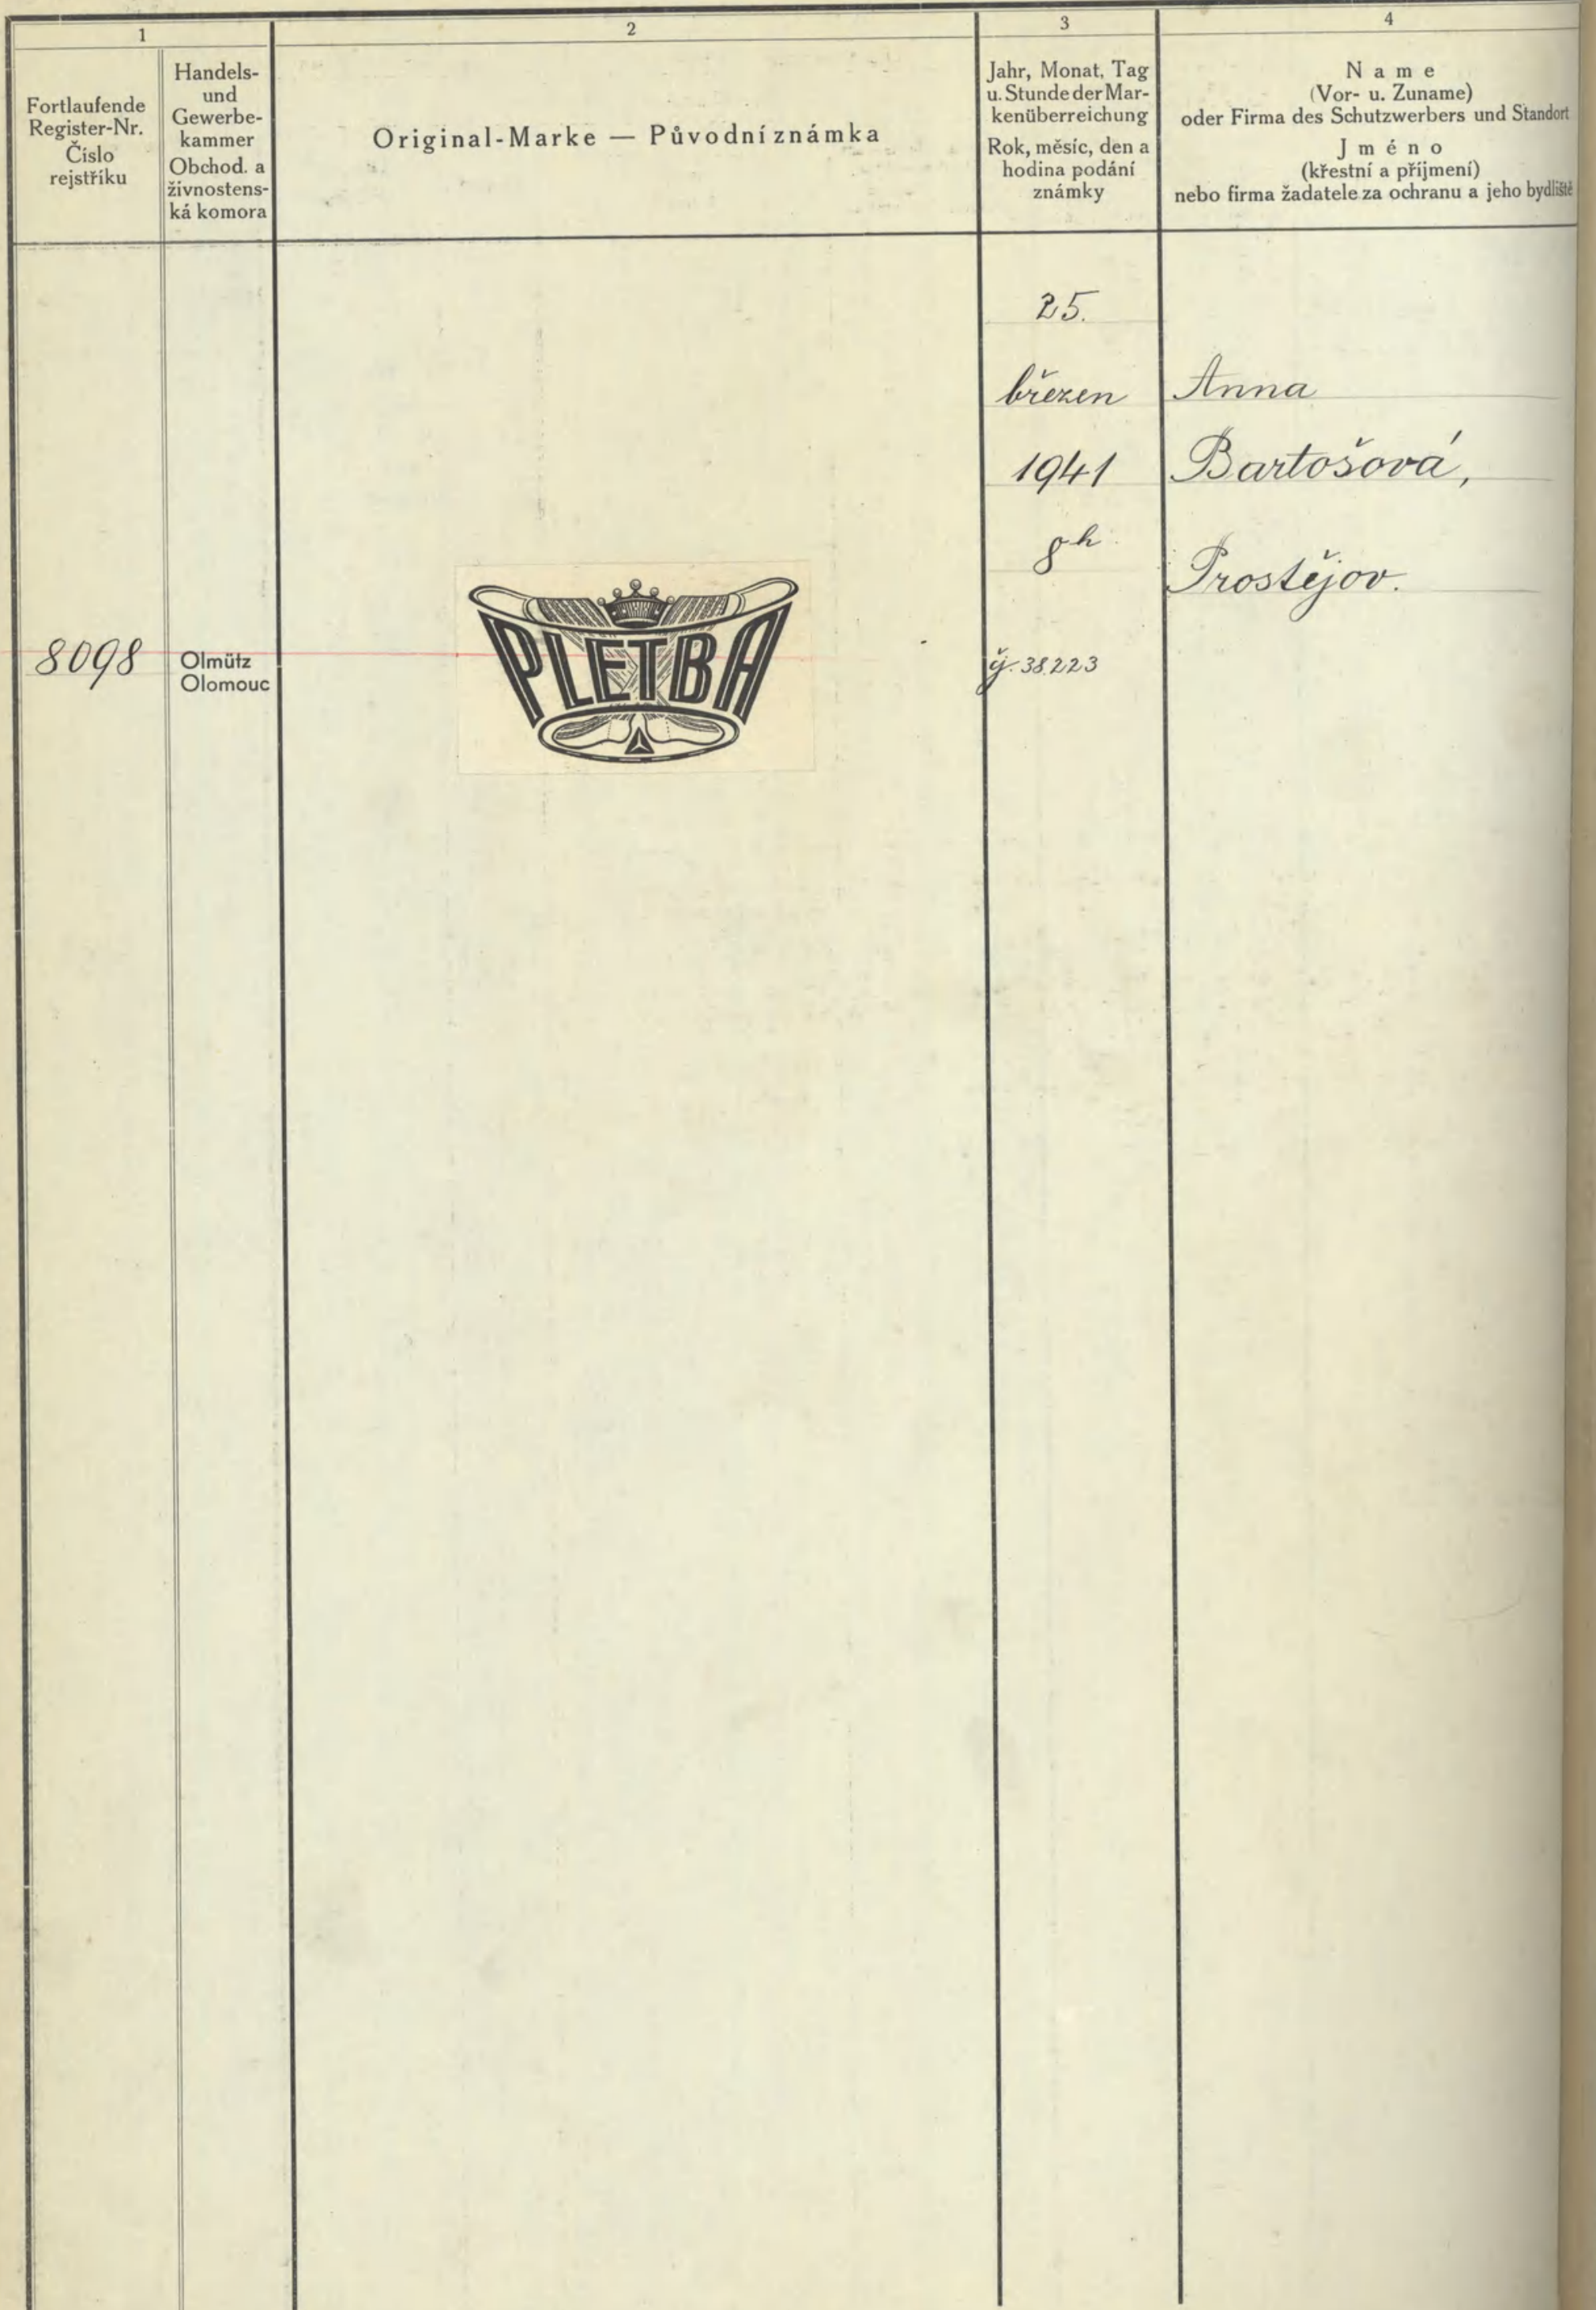 1
2
3
4
Fortlaufende
Register-Nr.
Číslo
rejstříku
Handels-
und
Gewerbe-
kammer
Obchod. a
živnostens-
ká komora
Original-Marke — Původní známka
Jahr, Monat, Tag
u. Stunde der Mar-
kenüberreichung
Rok, měsíc, den a
hodina podání
známky
Name
(Vor- u. Zuname)
oder Firma des Schutzwerbers und Standort
Jméno
(křestní a příjmení)
nebo firma žadatele za ochranu a jeho bydliště
25.
březen
1941
8h.
čj. 38.223
Anna
Bartošová,
Prostějov.
8098
Olmütz
Olomouc
PLETBA